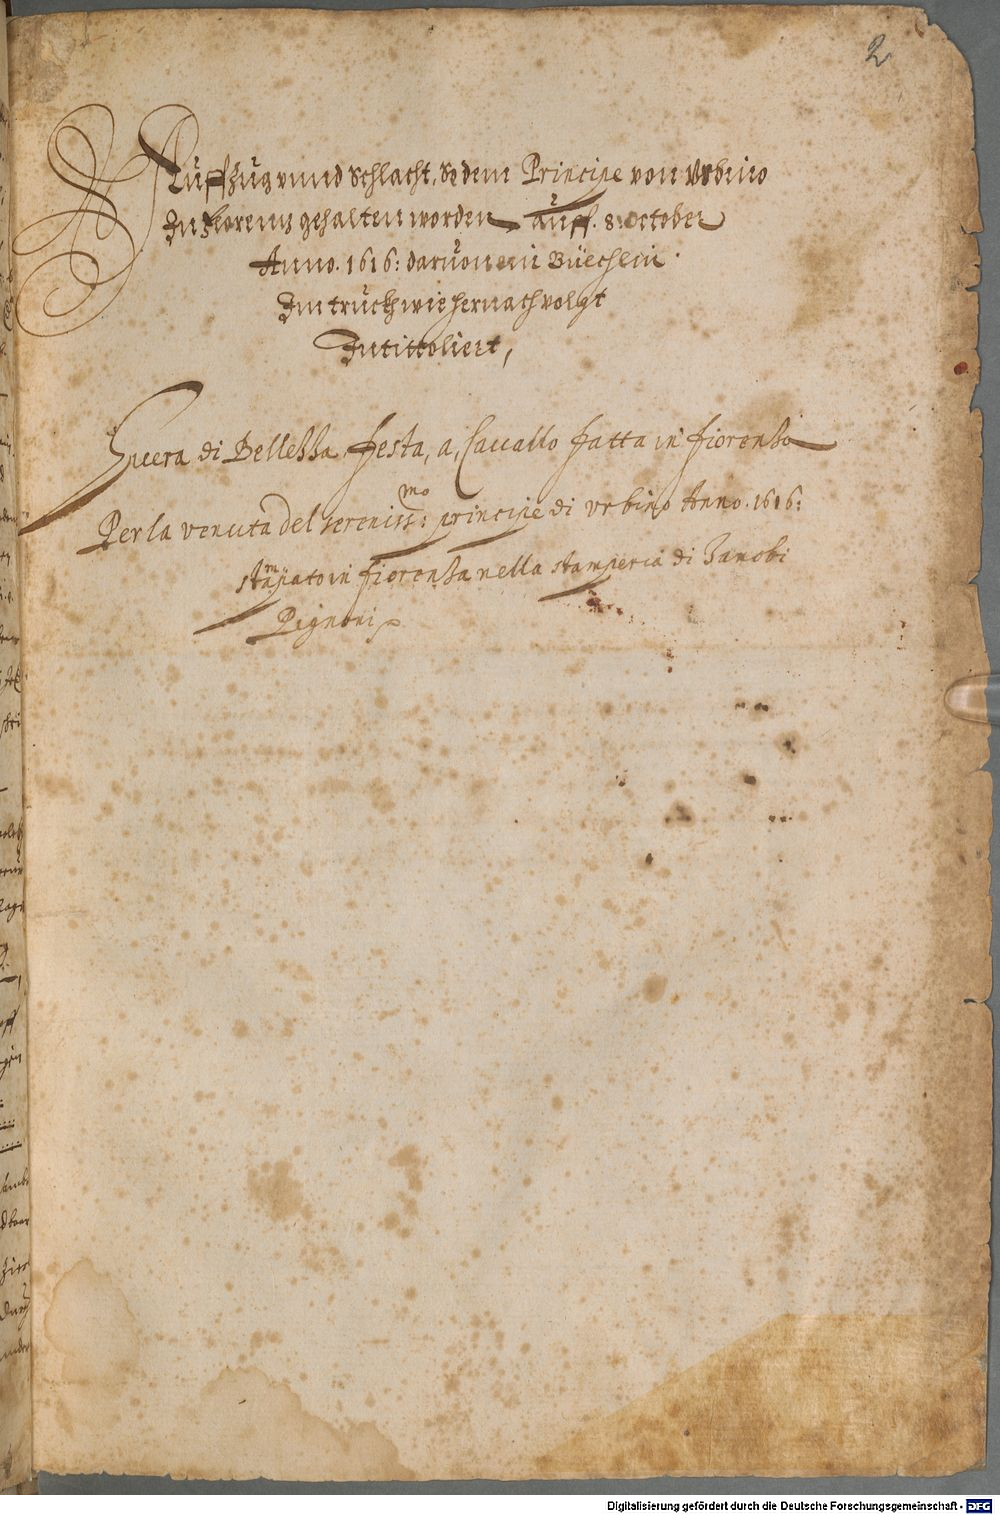 2
Auffzug vnnd Schlacht, So dem Principe von Vrbino
In Florenz gehalten worden, auff. 8. October
Anno. 1616: daruon ein Büechlein
Im truckh wie hernach volgt
Intittoliert,
Guera di Bellezza, festa, a, Cauallo fatta in fiorenza
Per la venuta del sereniss:mo principe di vrbino Anno. 1616:
stampato in fiorenza nella stamperia di Zanobi
Pignoni
Digitalisierung gefördert durch die Deutsche Forschungsgemeinschaft - DFG